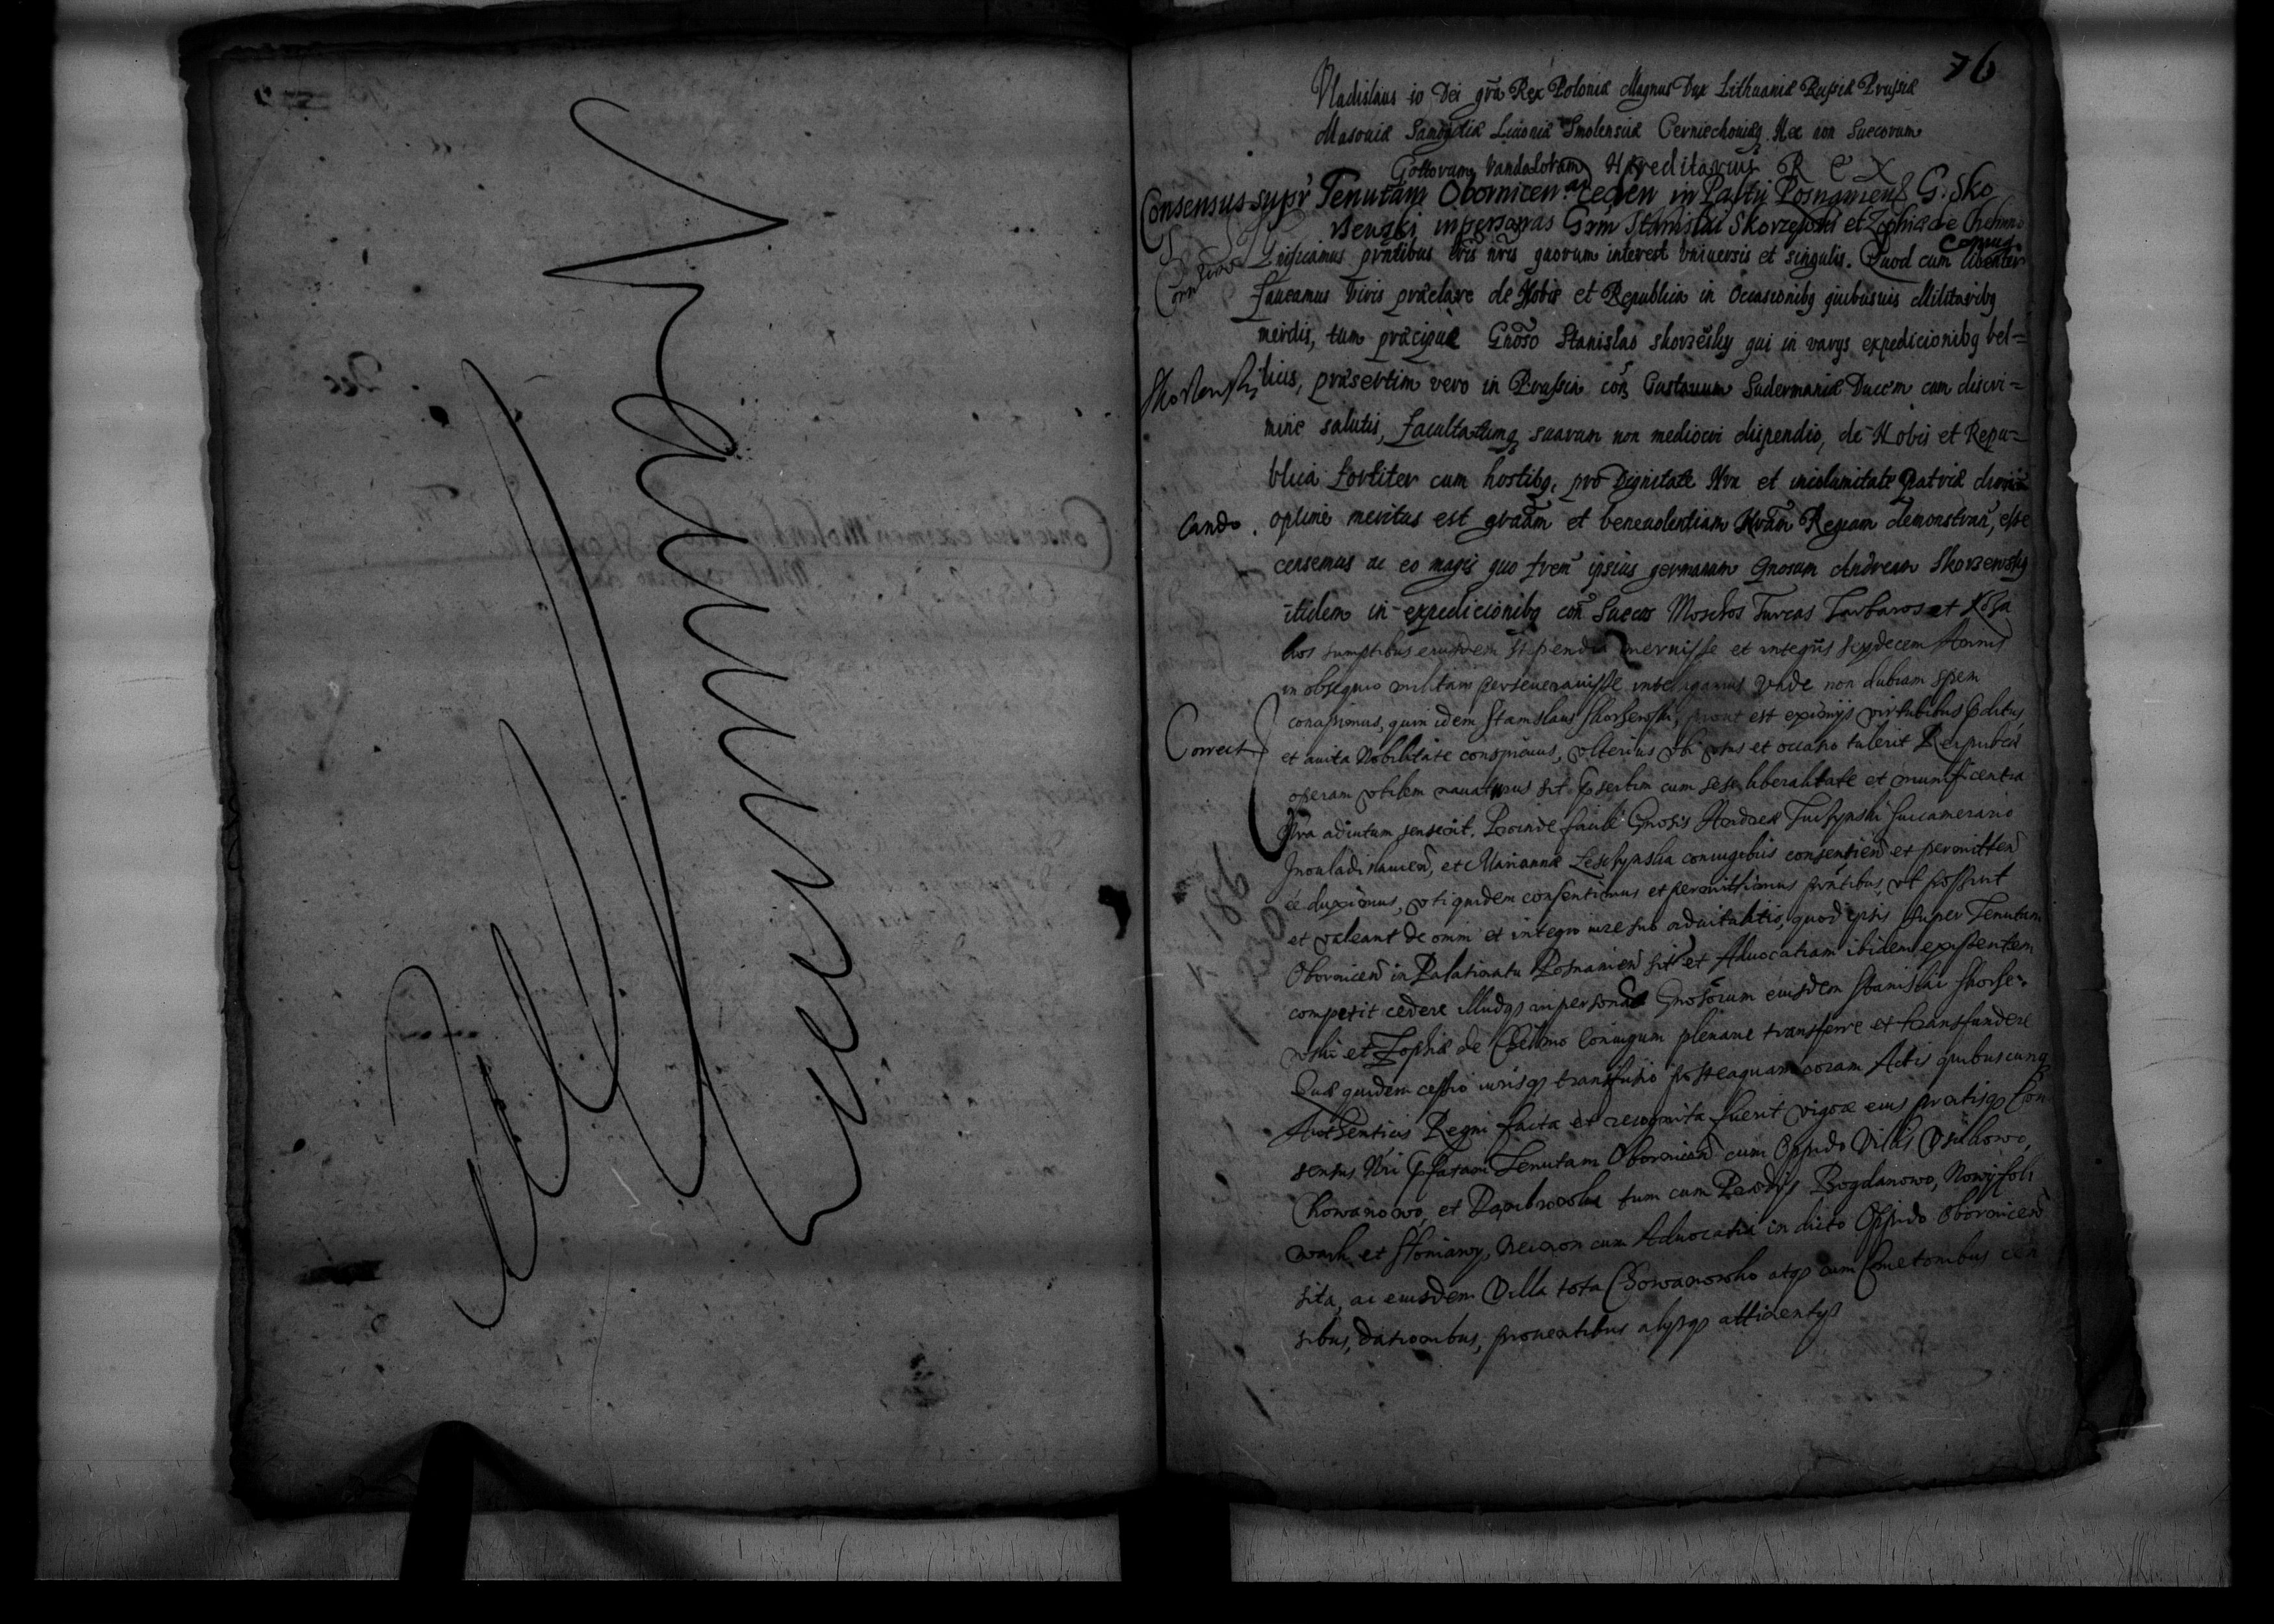 76
Vladislaus io Dei gra Rex Poloniæ Magnus Dux Lithuaniæ Russiæ Prussiæ
Masouiæ Samogitiæ Liuoniæ Smolensciæ Cerniechouiæq Nec non Suecorum
Gottorum Vandalorum Hæreditarius R e x
Consensus supr Tenutam Obornicen ad ceden in Palttu Posnaniens G. Sko
rzewski in personas Grm Stanislai Skorzewski et Zophiæ de Chelmno
Coniug.
Significamus prntibus lris nris quorum interest vniuersis et singulis. Quod cum libenter
faueamus viris præclare de Nobis et Republica in Occasionibq quibusuis Militaribq
meritis, tum præcipuè Gnoso Stanislao Skorzesky qui in varys expedicionibq bel=
Skorzewski licis, præsertim vero in Prussia con Gustauum Sudermaniæ Ducem cum discri=
mine salutis, facultatumq suarum non mediocri dispendio, de Nobis et Repu=
blica fortiter cum hostibq, pro Dignitate Nra et incolumitate Patriæ
cando. optime meritus est gratiam et beneuolentiam Nram Regiam demonstran, esse
censemus ac eo magis quo frem ipsius germanum Gnosum Andream Skorzewsky
itidem in expedicionibq con Suecos Moschos Turcas Tartaros et Kosa
kos sumptibus eiusdem stipendia meruisse et integris sexdecem Annis
in obsequio militari perseuerauisse intelligamus Vnde non dubiam spem
Correct
concipimus, quin idem Stanislaus Skorzewski, prout est eximijs virtutibus preditus,
et auita Nobilitate conspicuus, vlterius vbi vsus et occasio tulerit Reipublicæ
operam vtilem nauaturus sit præsertim cum sese liberalitate et munificentia
Nra adiutum senserit. Proinde facile Gnosis Andreæ Tuczynski Succamerario
Jnouladislauien, et Mariannæ Leszczynska coniugibus consentien et permitten
ee duximus, vti quidem consentimus et permittimus prntibus, vt possint
et valeant de omni et integro iure suo aduitalitio, quod ipsis super Tenutam
Obornicen in Palatinatu Posnanien sit et Aduocatiam ibidem existentem
competit cedere illudq in personas Gnosorum eiusdem Stanislai Skorze=
wski et Zophiæ de Chelmno Coniugum plenarie transferre et transfundere
Quæ quidem cessio iurisq transfusio posteaquam coram Actis quibuscunq
Authenticis Regni facta et recognita fuerit vigore eius prntisq Con
sensus Nri præfatam Tenutam Obornicen cum Oppido Villis Vscikowo,
Chowanowo, et tum cum Prædijs Bogdanowo, Nowyfol
wark et Stoniawy, Necnon cum Aduocatia in dicto Oppido Obornicen
sita, ac eiusdem Villa tota Chowanowko atq cum Cmetonibus cen
sibus, dationibus, prouentibus alijsq attinentijs
186
230